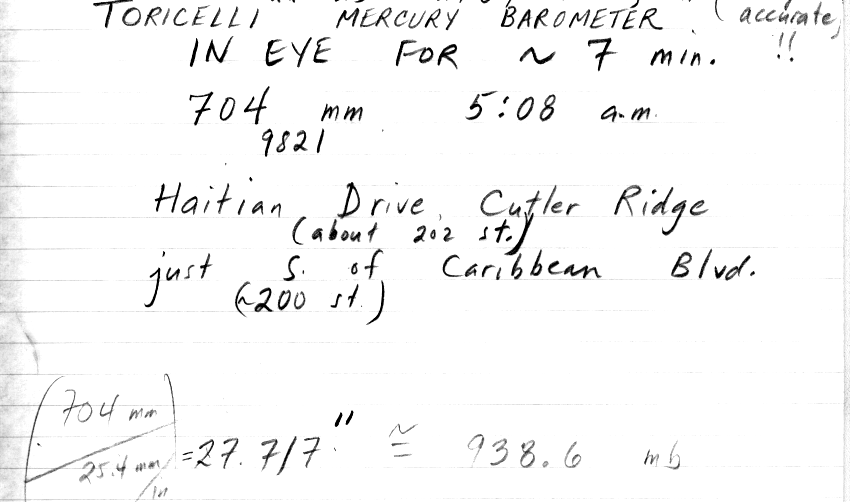 TORICELLI MERCURY BAROMETER (accurate)
IN EYE FOR ~ 7 min. !!
704 mm 5:08 a.m.
9821
Haitian Drive, Cutler Ridge
(about 202 st.)
just S. of Caribbean Blvd.
(~200 st.)
(704 mm / 25.4 mm/in) = 27.717" ≅ 938.6 mb